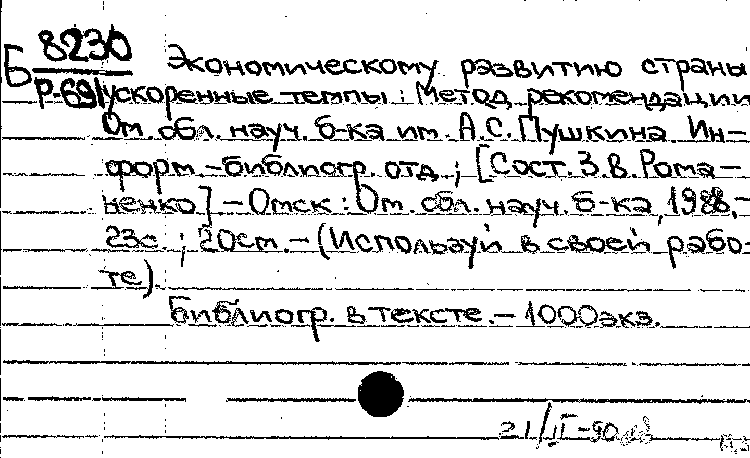 Б 8230 Экономическому развитию страны
Р-691 ускоренные темпы : Метод. рекомендации
Ом. обл. науч. б-ка им. А.С. Пушкина. Ин-
форм.-библиогр. отд. ; [Сост. З.В. Рома-
ненко] – Омск : Ом. обл. науч. б-ка, 1988,-
23с. ; 20см. – (Используй в своей рабо-
те).
Библиогр. в тексте. – 1000экз.
21/II-90